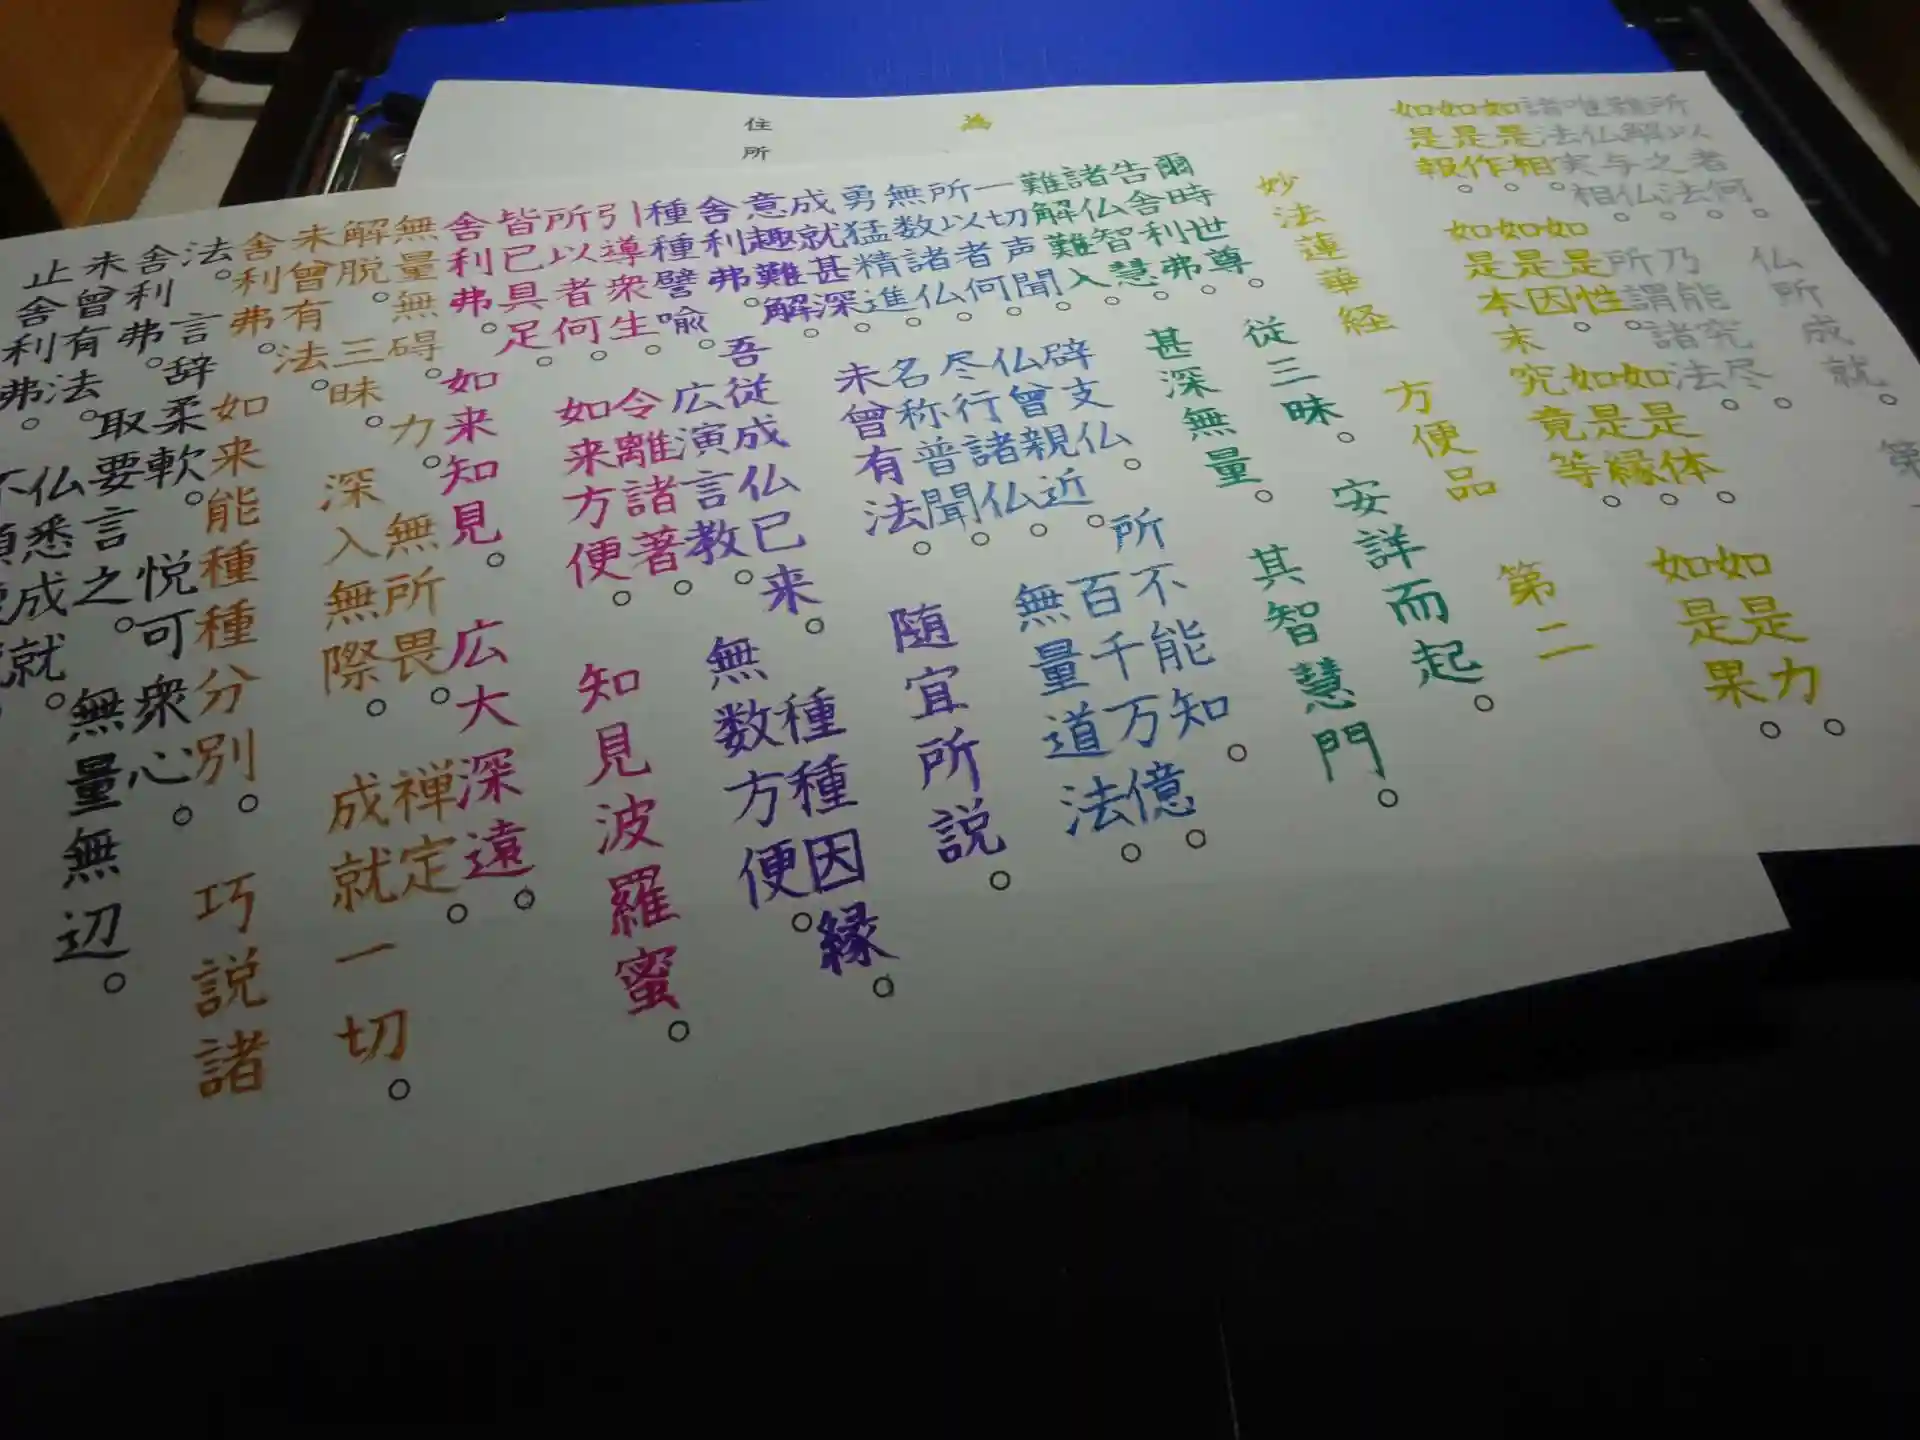 所以者何。仏所成就。第
難解之法。
唯仏与仏。乃能究尽。
諸法実相。所謂諸法。
如是相。如是性。如是体。如是力。
如是作。如是因。如是縁。如是果。
如是報。如是本末究竟等。
為
住所
妙法蓮華経 方便品 第二
爾時世尊。従三昧。安詳而起。
告舎利弗。
諸仏智慧。甚深無量。其智慧門。
難解難入。
一切声聞。辟支仏。所不能知。
所以者何。仏曾親近。百千万億。
無数諸仏。尽行諸仏。無量道法。
勇猛精進。名称普聞。
成就甚深。未曾有法。随宜所説。
意趣難解。
舎利弗。吾従成仏已来。種種因縁。
種種譬喩。広演言教。無数方便。
引導衆生。令離諸著。
所以者何。如来方便。知見波羅蜜。
皆已具足。
舎利弗。如来知見。広大深遠。
無量無碍。力。無所畏。禅定。
解脱。三昧。深入無際。成就一切。
未曾有法。
舎利弗。如来能種種分別。巧説諸
法。言辞柔軟。悦可衆心。
舎利弗。取要言之。無量無辺。
未曾有法。仏悉成就。
止舎利弗。不須